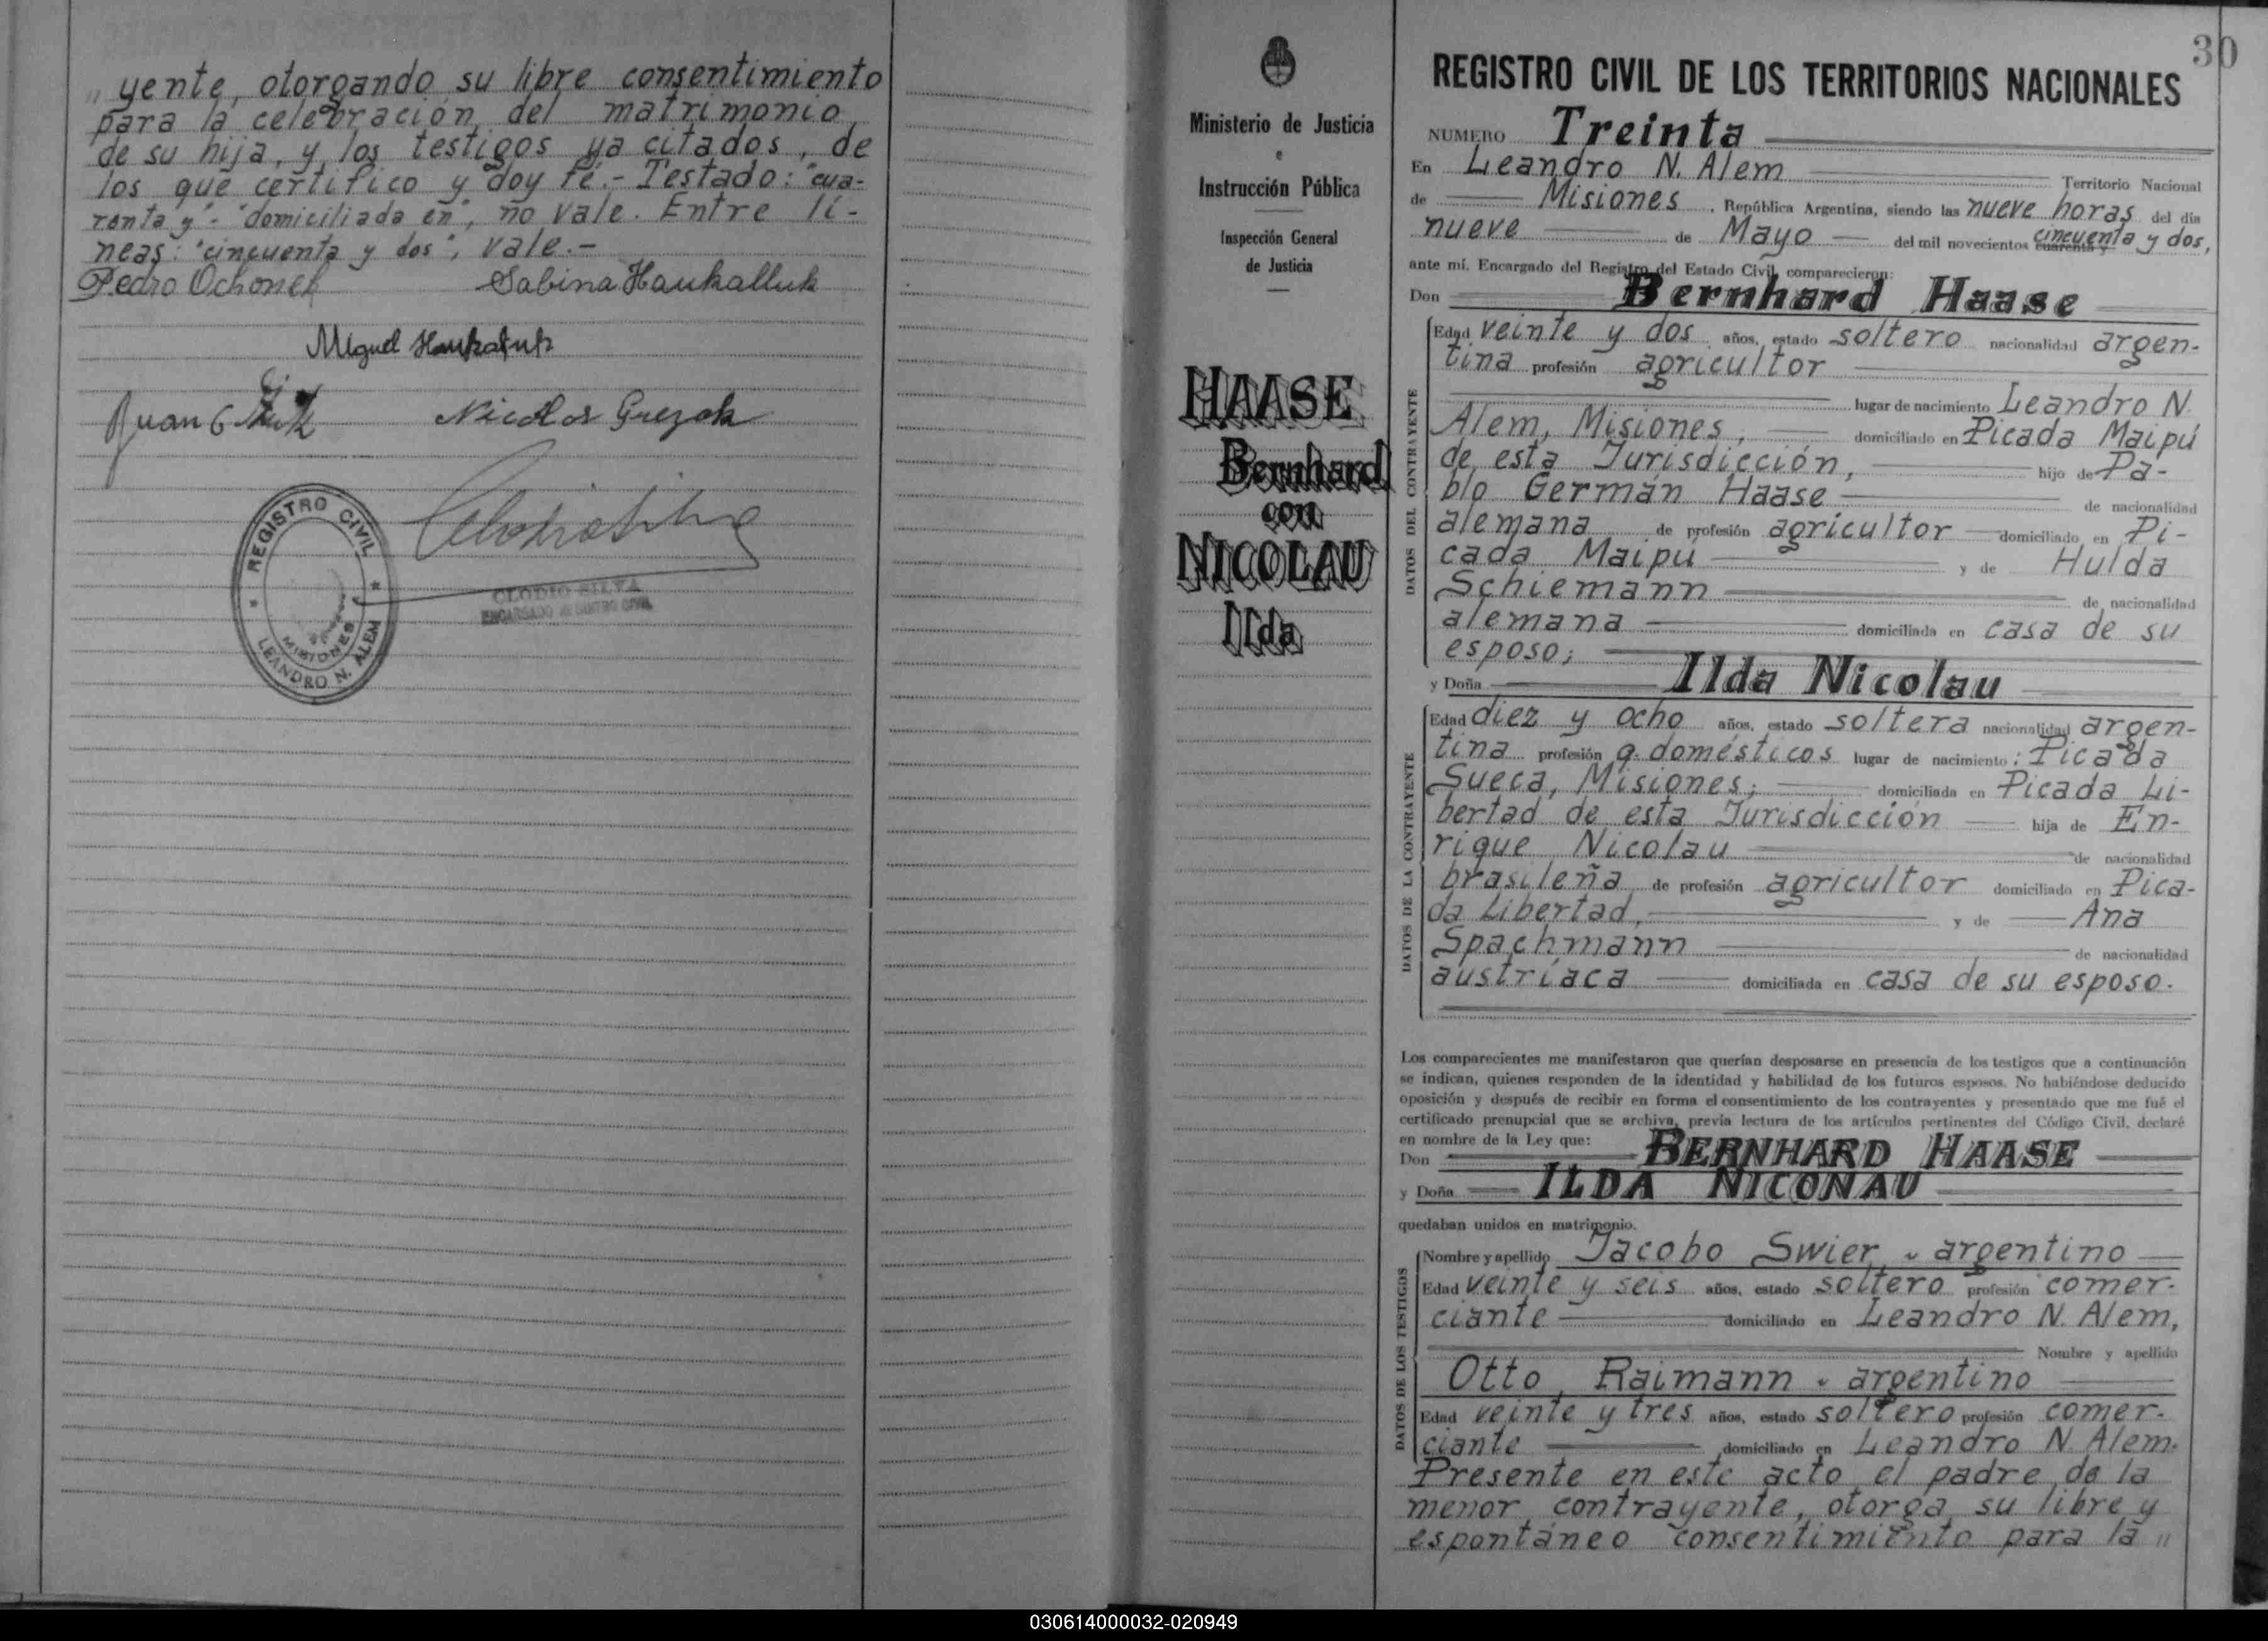 " yente, otorgando su libre consentimiento
para la celebración del matrimonio
de su hija, y los testigos ya citados, de
los que certifico y doy fé.- Testado: "cua-
renta y"- "domiciliada en", no vale. Entre lí-
neas: "cincuenta y dos", vale.-
Pedro Ochonek Sabina Haukalluk
Miguel
Juan Nicolas
REGISTRO CIVIL
MISIONES
LEANDRO N. ALEM
CLODIO SILVA
ENCARGADO REGISTRO CIVIL
Ministerio de Justicia
e
Instrucción Pública
Inspección General
de Justicia
HAASE
Bernhard
con
NICOLAU
Ilda
30
REGISTRO CIVIL DE LOS TERRITORIOS NACIONALES
NUMERO Treinta
En Leandro N. Alem Territorio Nacional
de Misiones, República Argentina, siendo las nueve horas del día
nueve de Mayo del mil novecientos cuarenta y cincuenta y dos,
ante mí. Encargado del Registro del Estado Civil, comparecieron:
Don Bernhard Haase
DATOS DEL CONTRAYENTE
Edad veinte y dos años, estado soltero nacionalidad argen-
tina profesión agricultor
lugar de nacimiento Leandro N.
Alem, Misiones, domiciliado en Picada Maipú
de esta Jurisdicción, hijo de Pa-
blo Germán Haase de nacionalidad
alemana de profesión agricultor domiciliado en Pi-
cada Maipú y de Hulda
Schiemann de nacionalidad
alemana domiciliada en casa de su
esposo;
y Doña Ilda Nicolau
DATOS DE LA CONTRAYENTE
Edad diez y ocho años, estado soltera nacionalidad argen-
tina profesión q. domésticos lugar de nacimiento: Picada
Sueca, Misiones; domiciliada en Picada Li-
bertad de esta Jurisdicción hija de En-
rique Nicolau de nacionalidad
brasileña de profesión agricultor domiciliado en Pica-
da Libertad, y de Ana
Spachmann de nacionalidad
austríaca domiciliada en casa de su esposo.
Los comparecientes me manifestaron que querían desposarse en presencia de los testigos que a continuación
se indican, quienes responden de la identidad y habilidad de los futuros esposos. No habiéndose deducido
oposición y después de recibir en forma el consentimiento de los contrayentes y presentado que me fué el
certificado prenupcial que se archiva, previa lectura de los artículos pertinentes del Código Civil, declaré
en nombre de la Ley que:
Don BERNHARD HAASE
y Doña ILDA NICONAU
quedaban unidos en matrimonio.
DATOS DE LOS TESTIGOS
Nombre y apellido Jacobo Swier - argentino
Edad veinte y seis años, estado soltero profesión comer-
ciante domiciliado en Leandro N. Alem,
Nombre y apellido
Otto Raimann - argentino
Edad veinte y tres años, estado soltero profesión comer-
ciante domiciliado en Leandro N. Alem.
Presente en este acto el padre de la
menor contrayente, otorga su libre y
espontáneo consentimiento para la "
030614000032-020949